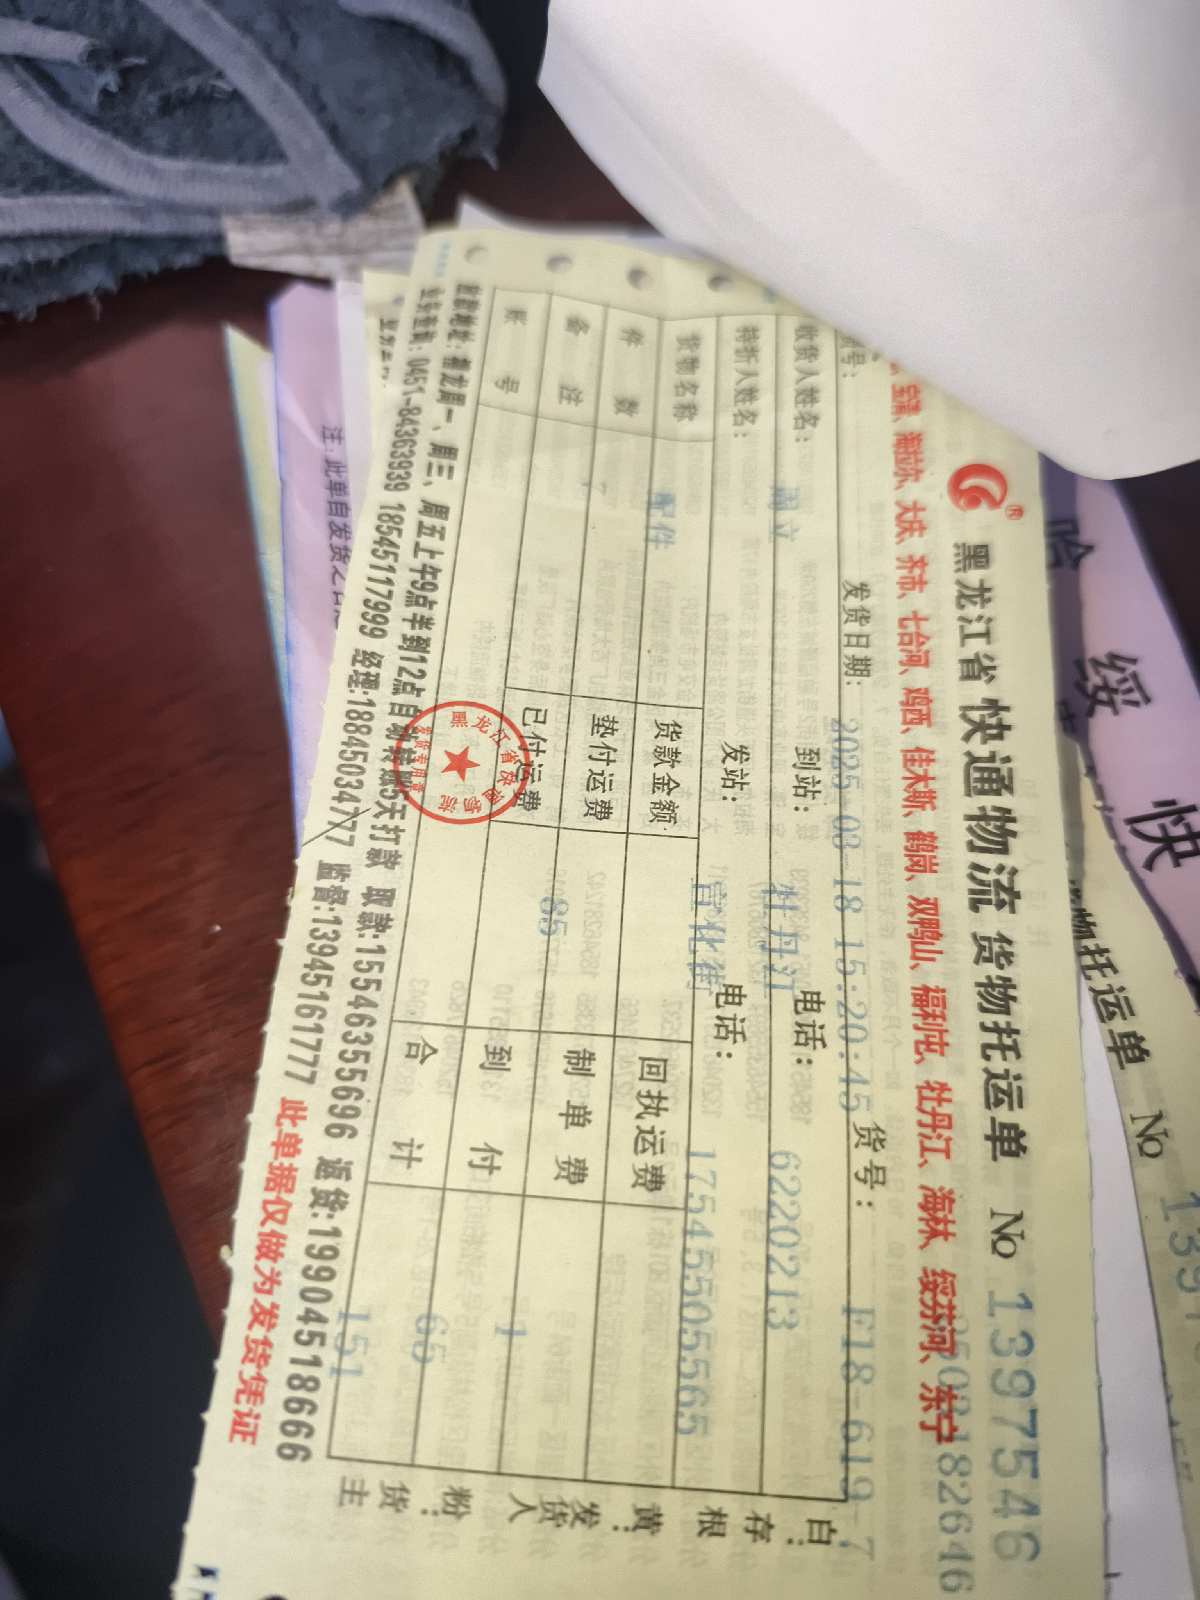 黑龙江省 快通物流 货物托运单 No 1397546
宝清、海拉尔、大庆、齐市、七台河、鸡西、佳木斯、鹤岗、双鸭山、福利屯、牡丹江、海林、绥芬河、东宁
发货日期: 2025-03-18 15:20:45 货号: F18-619-7
收货人姓名: 周立 到站: 牡丹江 电话: 6220213
特折人姓名: 发站: 宣化街 电话: 17545505565
货物名称 配件 货款金额 回执运费
件数 7 垫付运费 制单费 1
备注 已付运费 85 到付 65
账号 合计 151
白:存根 黄:发货人 粉:货主
黑龙江省快通物流
发货专用章
周一、周三、周五上午9点半到12点自动转账5天打款 取款:15546355696 返货:19904518666
0451-84363939 18545117999 经理:18845034777 监督:13945161777 此单据仅做为发货凭证
注:此单自发货之日
哈
绥
快
货物托运单 No